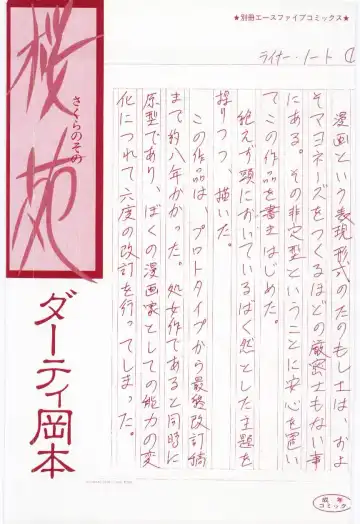 ★別冊エースファイブコミックス★
ライナー・ノート ①
桜苑
さくらのその
ダーティ岡本
漫画という表現形式のたのもしさは、およ
そマヨネーズをつくるほどの厳密さもない事
にある。その非定型ということに安心を置い
てこの作品を書きはじめた。
絶えず頭にかいているばく然とした主題を
探りつつ、描いた。
この作品は、プロトタイプから最終改訂稿
まで約八年がかった。処女作であると同時に
原型であり、ぼくの漫画家としての能力の変
化につれて六度の改訂を行ってしまった。
成年
コミック